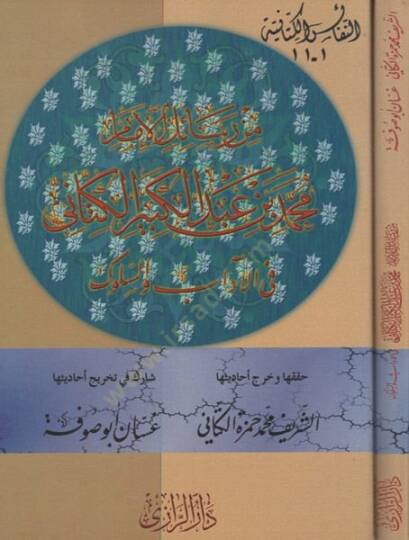 النفائس الكتانية
١-١١
من رسائل الإمام
محمد بن عبد الكبير الكتاني
في الآداب والسلوك
حققها وخرج أحاديثها
الشريف محمد حمزة الكتاني
شارك في تخريج أحاديثها
غسان أبو صوفة
دار الرازي
الشريف محمد حمزة الكتاني
غسان أبو صوفة
دار الرازي